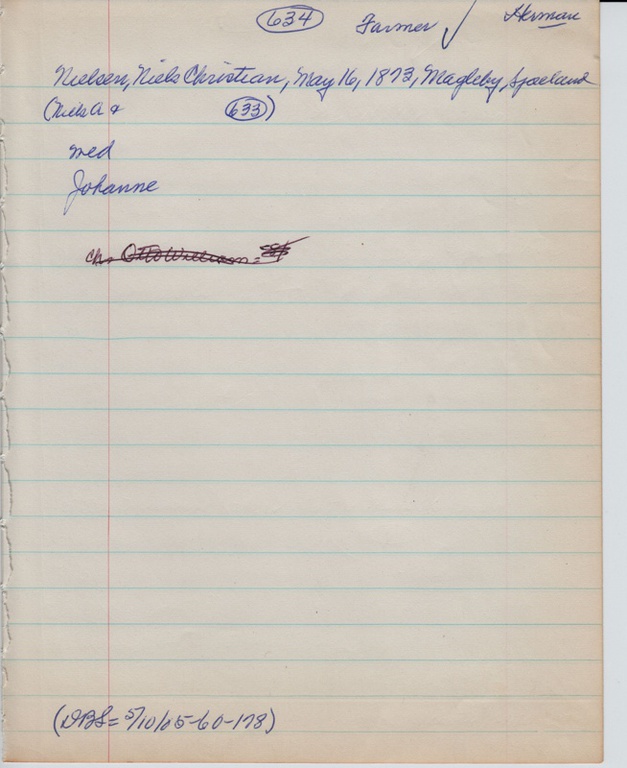 634 Farmer ✓ Herman
Nielsen, Niels Christian, May 16, 1873, Magleby, Sjaelland
(Niels A & 633)
med
Johanne
ch. Otto William =
(DBS = 5/10/05-60-178)